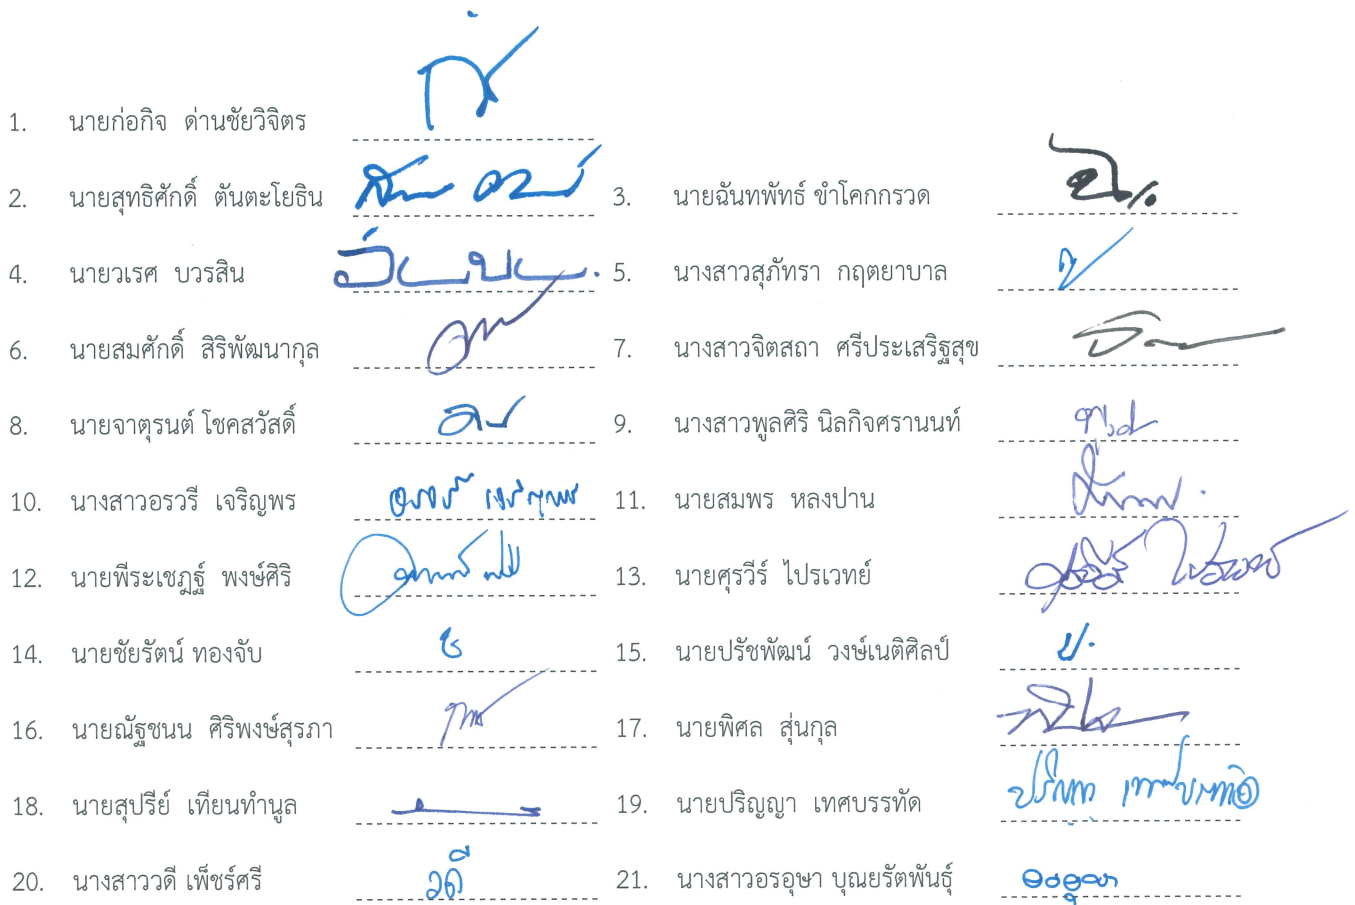 1. นายก่อกิจ ด่านชัยวิจิตร
2. นายสุทธิศักดิ์ ตันตะโยธิน 3. นายฉันทพัทธ์ ขำโคกกรวด
4. นายวเรศ บวรสิน 5. นางสาวสุภัทรา กฤตยาบาล
6. นายสมศักดิ์ สิริพัฒนากุล 7. นางสาวจิตสถา ศรีประเสริฐสุข
8. นายจาตุรนต์ โชคสวัสดิ์ 9. นางสาวพูลศิริ นิลกิจศรานนท์
10. นางสาวอรวรี เจริญพร อรวรี เจริญพร 11. นายสมพร หลงปาน
12. นายพีระเชฏฐ์ พงษ์ศิริ 13. นายศุรวีร์ ไปรเวทย์ ศุรวีร์ ไปรเวทย์
14. นายชัยรัตน์ ทองจับ ช 15. นายปรัชพัฒน์ วงษ์เนติศิลป์ ป.
16. นายณัฐชนน ศิริพงษ์สุรภา 17. นายพิศล สุ่นกุล
18. นายสุปรีย์ เทียนทำนูล 19. นายปริญญา เทศบรรทัด ปริญญา เทศบรรทัด
20. นางสาววดี เพ็ชร์ศรี วดี 21. นางสาวอรอุษา บุณยรัตพันธุ์ อรอุษา